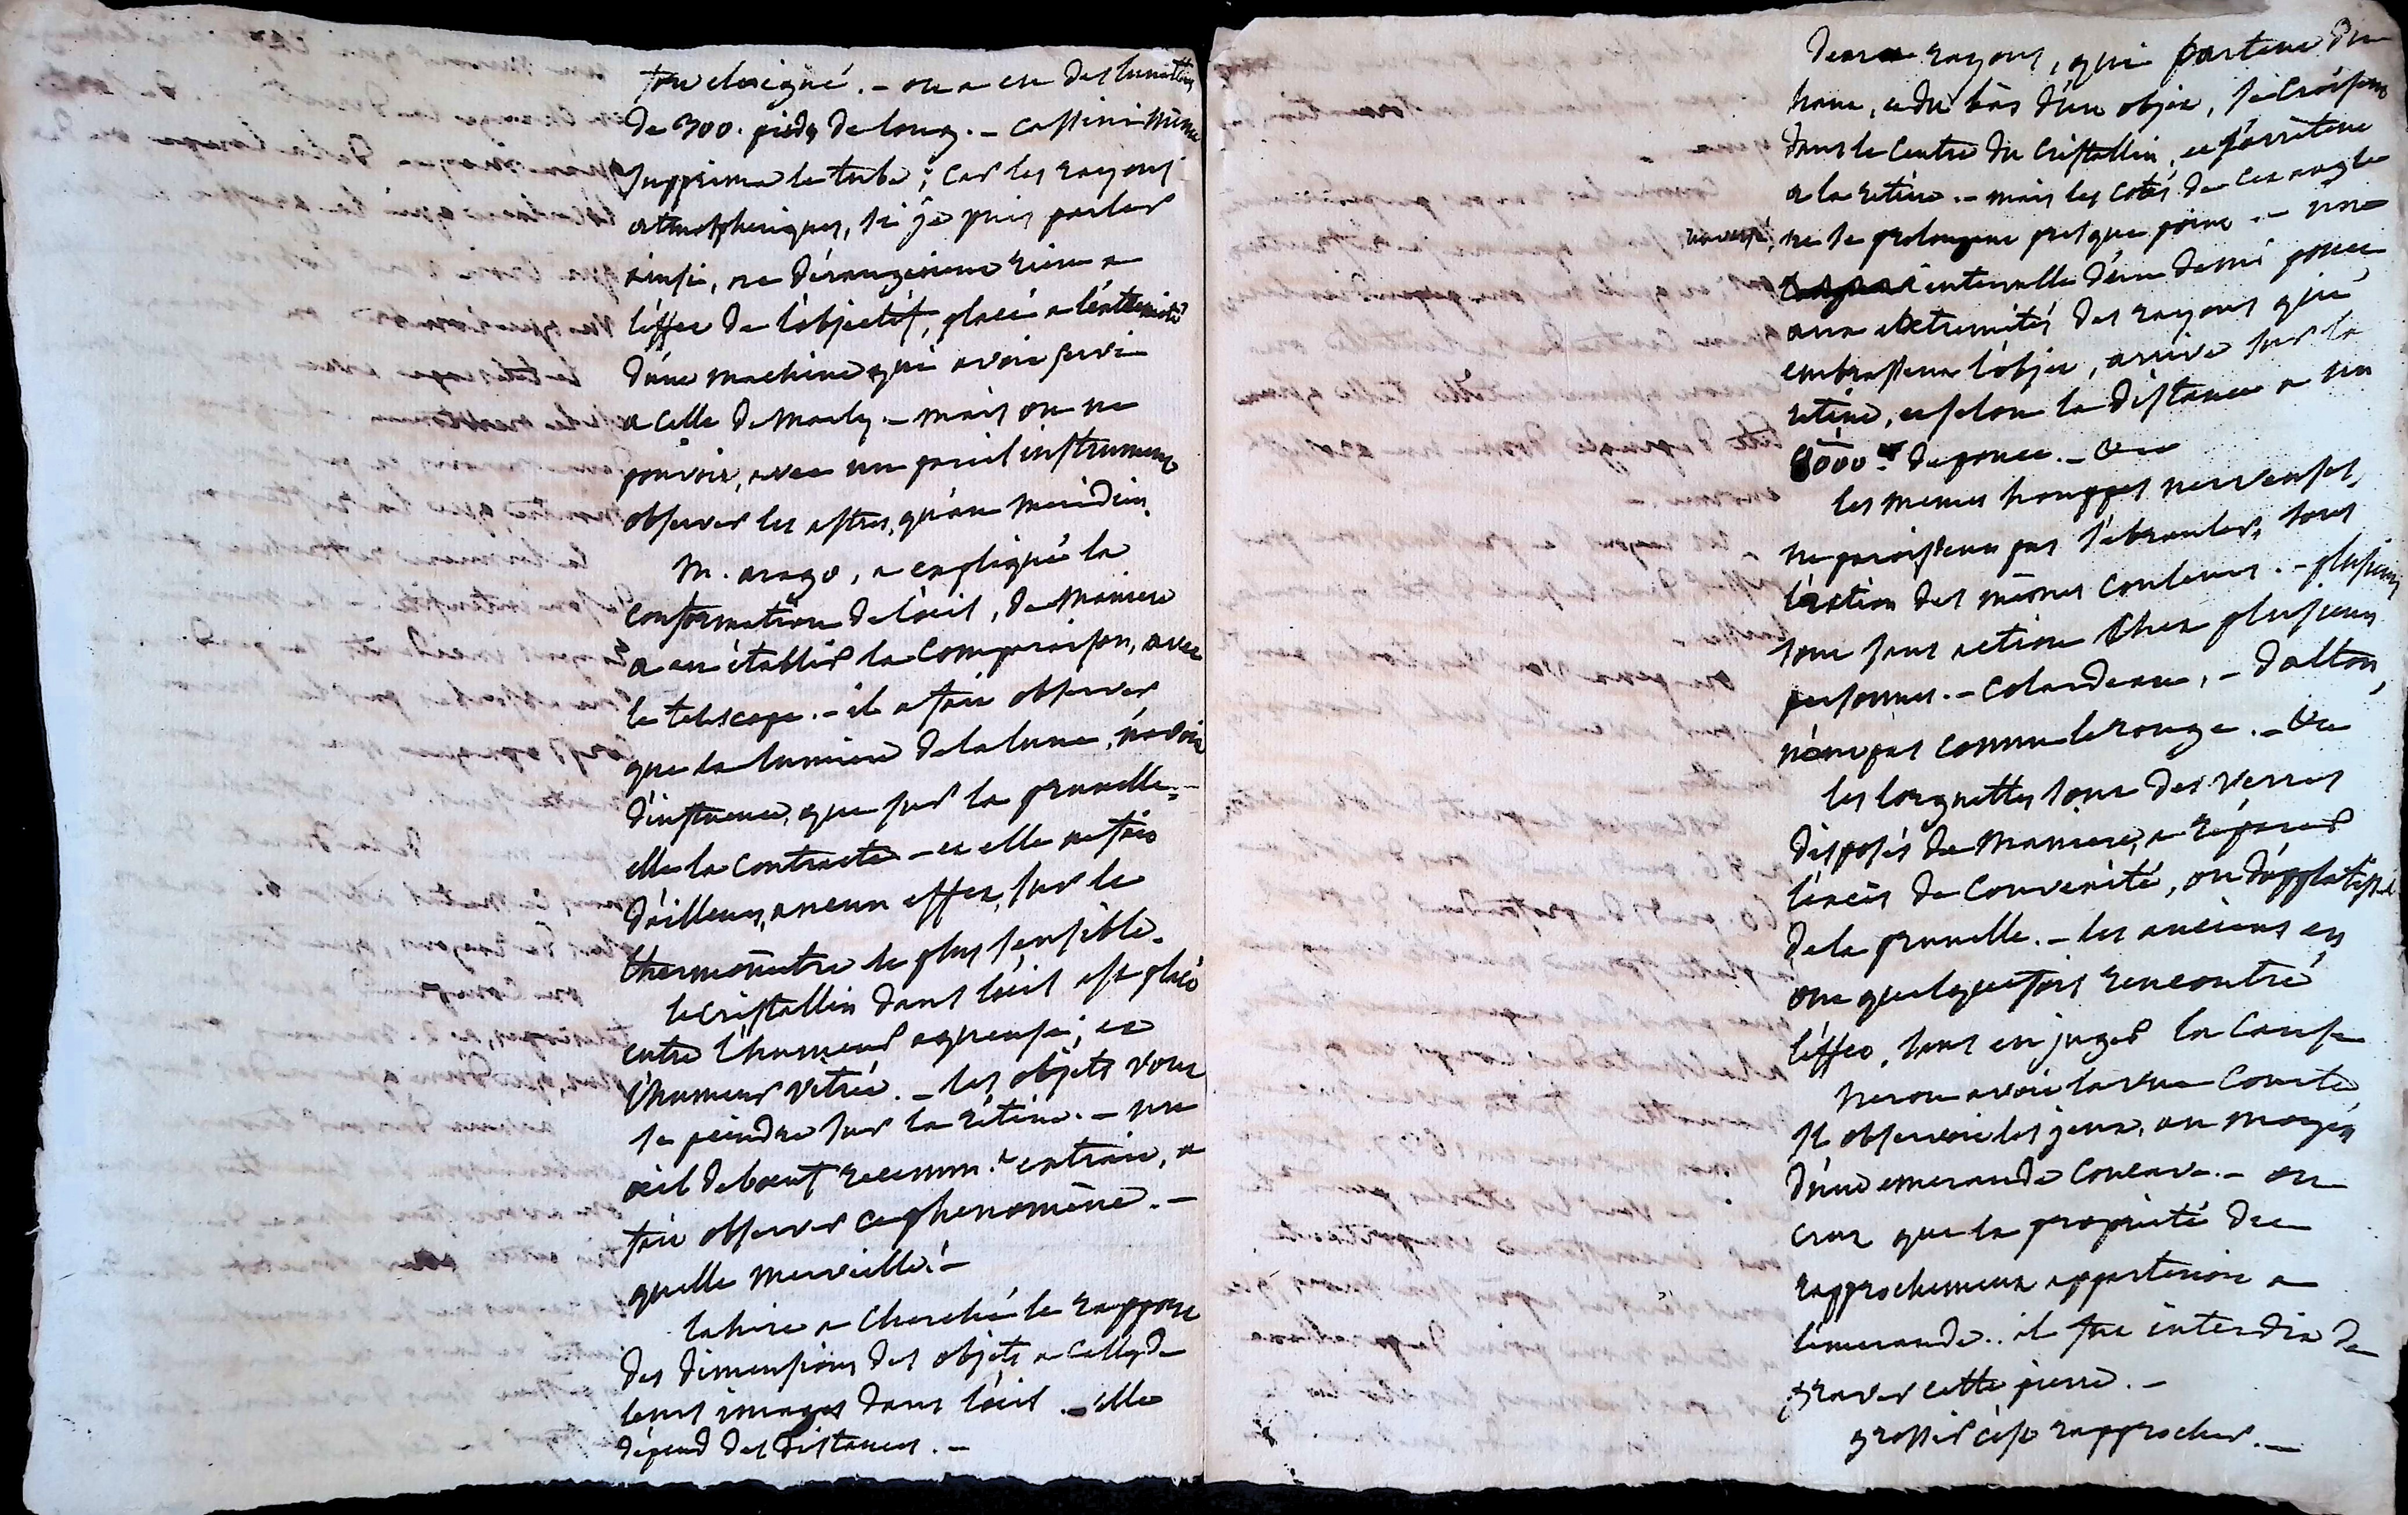 fou eloigné. – on a eu des lunettes
de 300. pieds de long. – cassini même
supprima le tube ; car les rayons
atmospheriques, si je puis parler
ainsi, ne dérangeoient rien a
l'effet de l'objectif, placé a l'extremité
d'une machine qui avoit servi
a celle de Marly. – mais on ne
pouvoit, avec un pareil instrument
observer les astres, qu'au meridien.
M. arago, a expliqué la
conformation de l'oeil, de maniere
a en établir la comparaison, avec
le telescope. – il a fait observer
que la lumiere de la lune, n'avoit
d'influence, que sur la prunelle. –
elle la contracte – et elle ne fait
d'ailleurs, aucun effet, sur le
thermomètre le plus sensible.
le cristallin dans l'oeil est placé
entre l'humeur aqueuse, et
l'humeur vitrée. – les objets vont
se peindre sur la rétine. – un
oeil de boeuf recemm.t extrait, a
fait observer ce phenomène. –
quelle merveille! –
lahire a cherché le rapport
des dimensions des objets a celles de
leurs images dans l'oeil. – elle
dépend des distances. –
deux rayons, qui partent du
haut, et du bas d'un objet, se croisent
dans le centre du cristallin, et s'arrêtent
a la retine. – mais les cotés de cet angle
renversé, ne se prolongent presque point. –
intervalle d'un demi pouce
aux extremités des rayons qui
embrassent l'objet, arrive sur la
retine, et selon la distance a un
8000.e de pouce. –
les memes houppes nerveuses,
ne paroissent pas s'ebranler, sous
l'action des mêmes couleurs. – plusieurs
sont sans action chez plusieurs
personnes. – colardeau, – dalton,
n'ont pas connu le rouge. –
les lorgnettes sont des verres
disposés de maniere, a réparer
l'excès de convexité, ou d'applatissem.t
de la prunelle. – les anciens en
ont quelquefois rencontré
l'effet, sans en juger la cause
neron avoit la vue courte,
il observoit les jeux, au moyen
d'une emeraude concave. – on
crut que la propriété du
rapprochement appartenoit a
l'emeraude. il fut interdit de
graver cette pierre. –
grossir c'est rapprocher. –